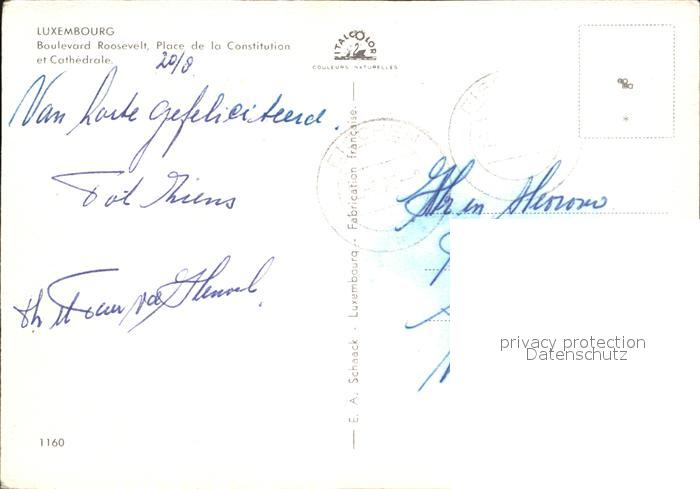 LUXEMBOURG
Boulevard Roosevelt, Place de la Constitution
et Cathédrale.
20/8
ITALCOLOR
COULEURS NATURELLES
Van harte gefeliciteerd.
Tot Ziens
E. A. Schaack - Luxembourg - Fabrication française.
en
privacy protection
Datenschutz
1160